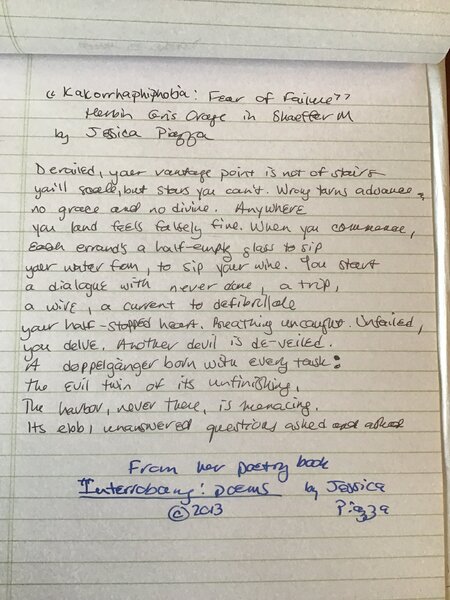 "Kakorrhaphiphobia: Fear of Failure"
Herbin Gris Orage in Shaeffer M
by Jessica Piazza
Derailed, your vantage point is not of stairs
you'll scale, but stars you can't. Wrong turns advance;
no grace and no divine. Anywhere
you land feels falsely fine. When you commence,
Each errand's a half-empty glass to sip
your water from, to sip your wine. You start
a dialogue with never done, a trip,
a wire, a current to defibrillate
your half-stopped heart. Breathing uncaught. Unfailed,
you delve. Another devil is de-veiled.
A doppelgänger born with every task:
the evil twin of its unfinishing.
The harbor, never there, is menacing.
Its ebb, unanswered questions asked and asked
From her poetry book
Interrobang: poems by Jessica
© 2013 Piazza